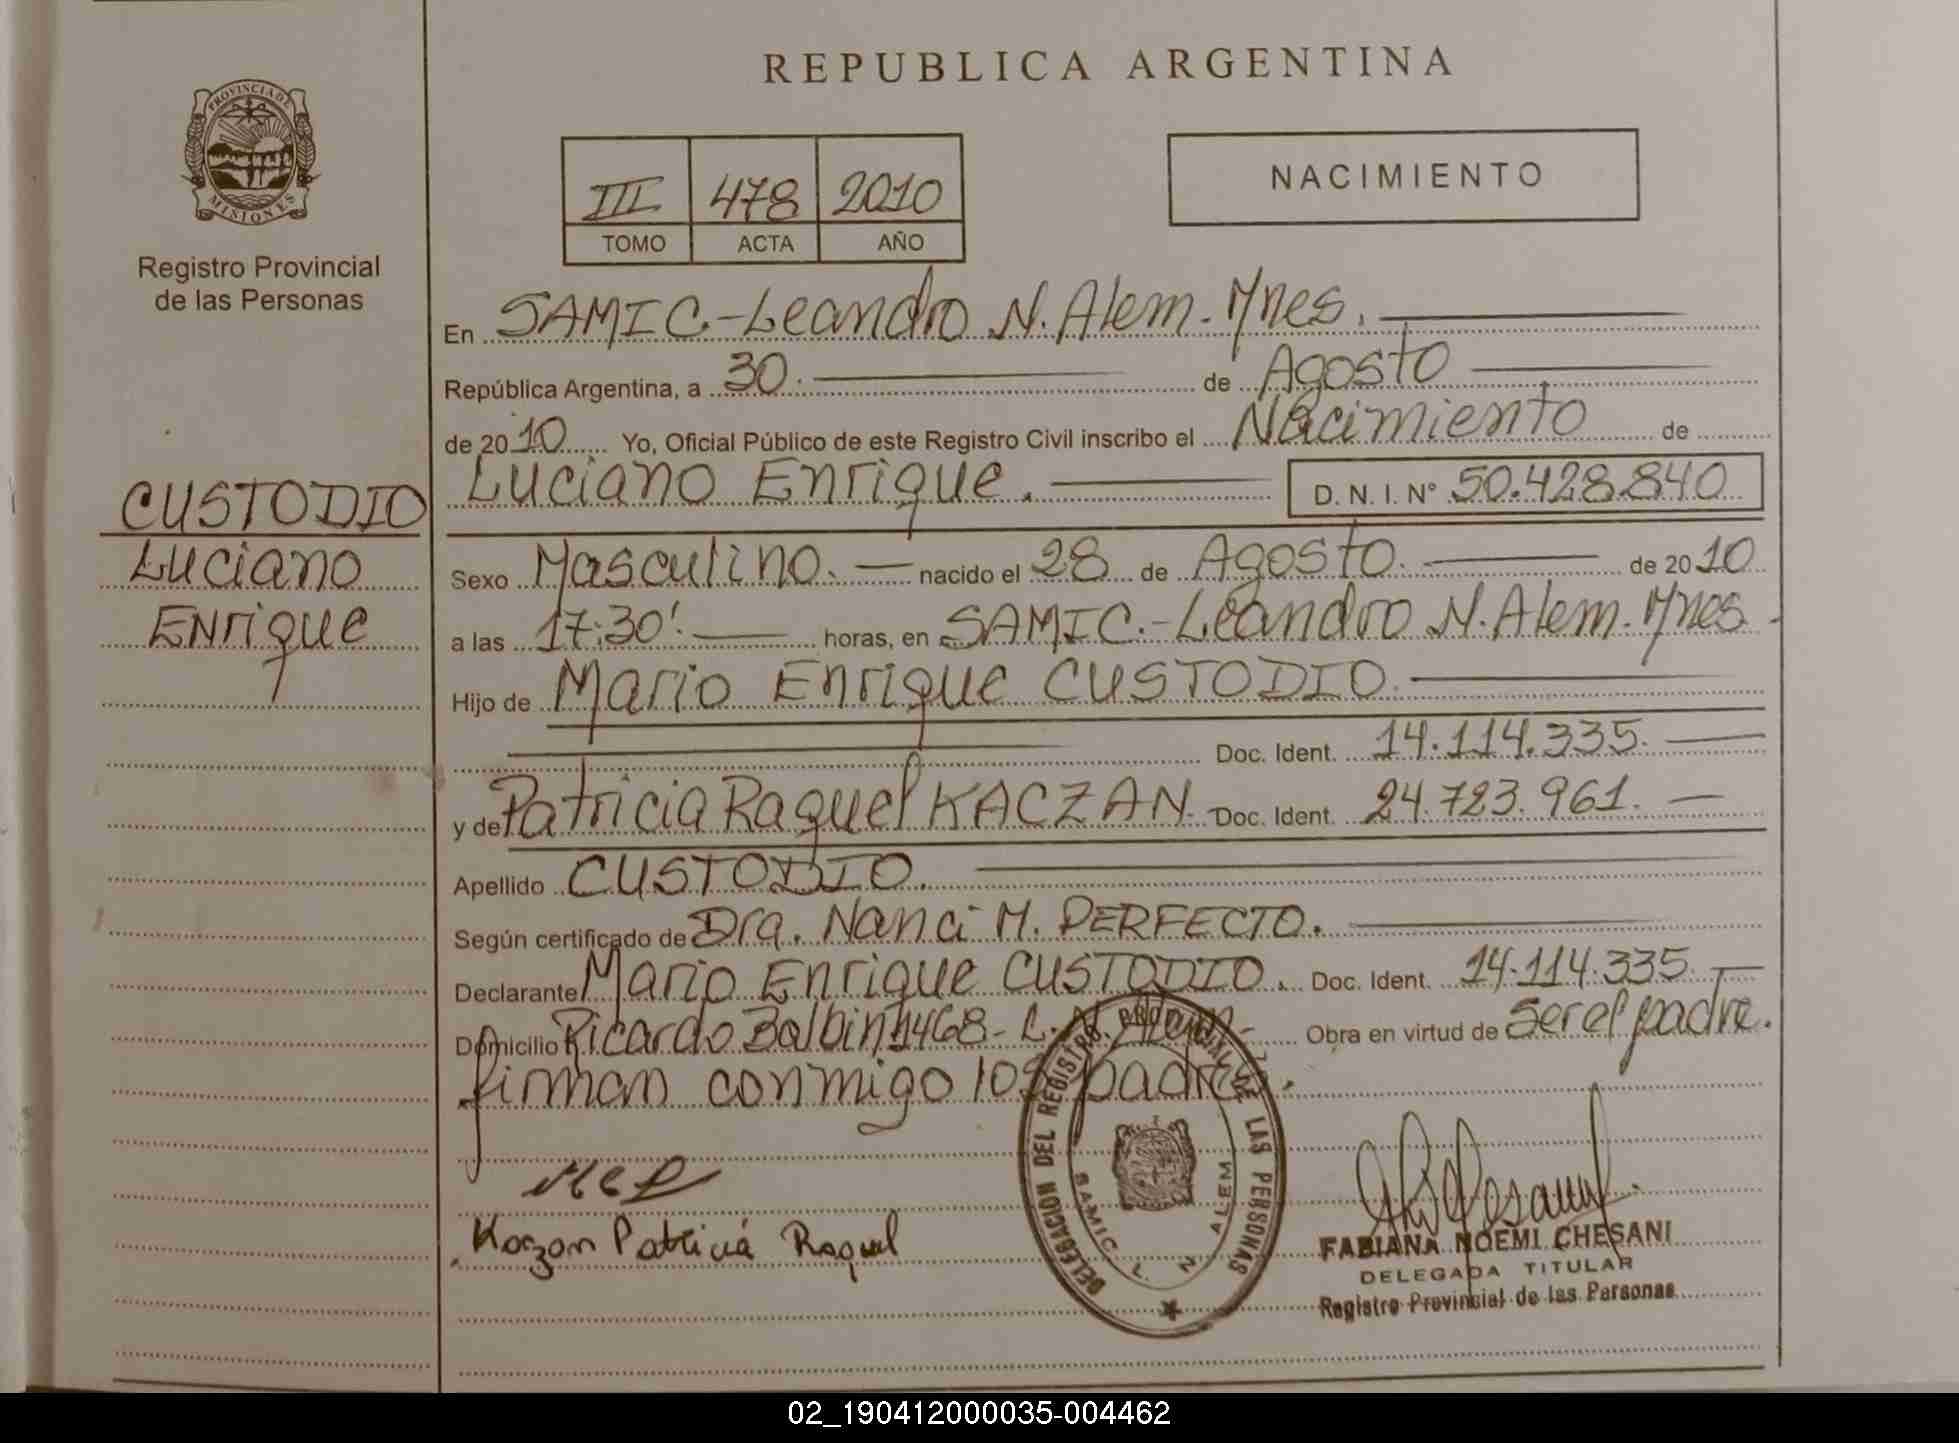 REPUBLICA ARGENTINA
PROVINCIA DE MISIONES
Registro Provincial
de las Personas
III 478 2010
TOMO ACTA AÑO
NACIMIENTO
CUSTODIO
Luciano
Enrique
En SAMIC.-Leandro N. Alem. Mnes.
República Argentina, a 30. de Agosto
de 2010 Yo, Oficial Público de este Registro Civil inscribo el Nacimiento de
Luciano Enrique. D. N. I. Nº 50.428.840
Sexo Masculino. nacido el 28 de Agosto. de 2010
a las 17:30'. horas, en SAMIC.-Leandro N. Alem. Mnes.
Hijo de Mario Enrique CUSTODIO.
Doc. Ident. 14.114.335.
y de Patricia Raquel KACZAN. Doc. Ident. 24.723.961.
Apellido CUSTODIO.
Según certificado de Dra. Nanci M. PERFECTO.
Declarante Mario Enrique CUSTODIO. Doc. Ident. 14.114.335.
Domicilio Ricardo Balbin 1468- L. N. Alem- Obra en virtud de ser el padre.
firman conmigo los padres.
Kaczan Patricia Raquel
DELEGACION DEL REGISTRO PROVINCIAL DE LAS PERSONAS
SAMIC L. N. ALEM
FABIANA NOEMI CHESANI
DELEGADA TITULAR
Registro Provincial de las Personas
02_190412000035-004462